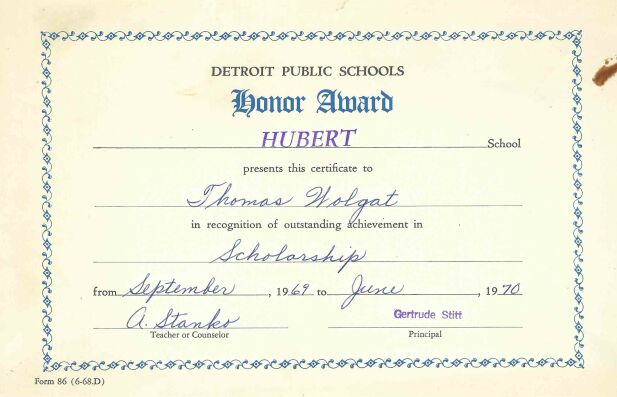 DETROIT PUBLIC SCHOOLS
Honor Award
HUBERT School
presents this certificate to
Thomas Wolgat
in recognition of outstanding achievement in
Scholarship
from September, 1969 to June, 1970
A. Stanko Gertrude Stitt
Teacher or Counselor Principal
Form 86 (6-68.D)